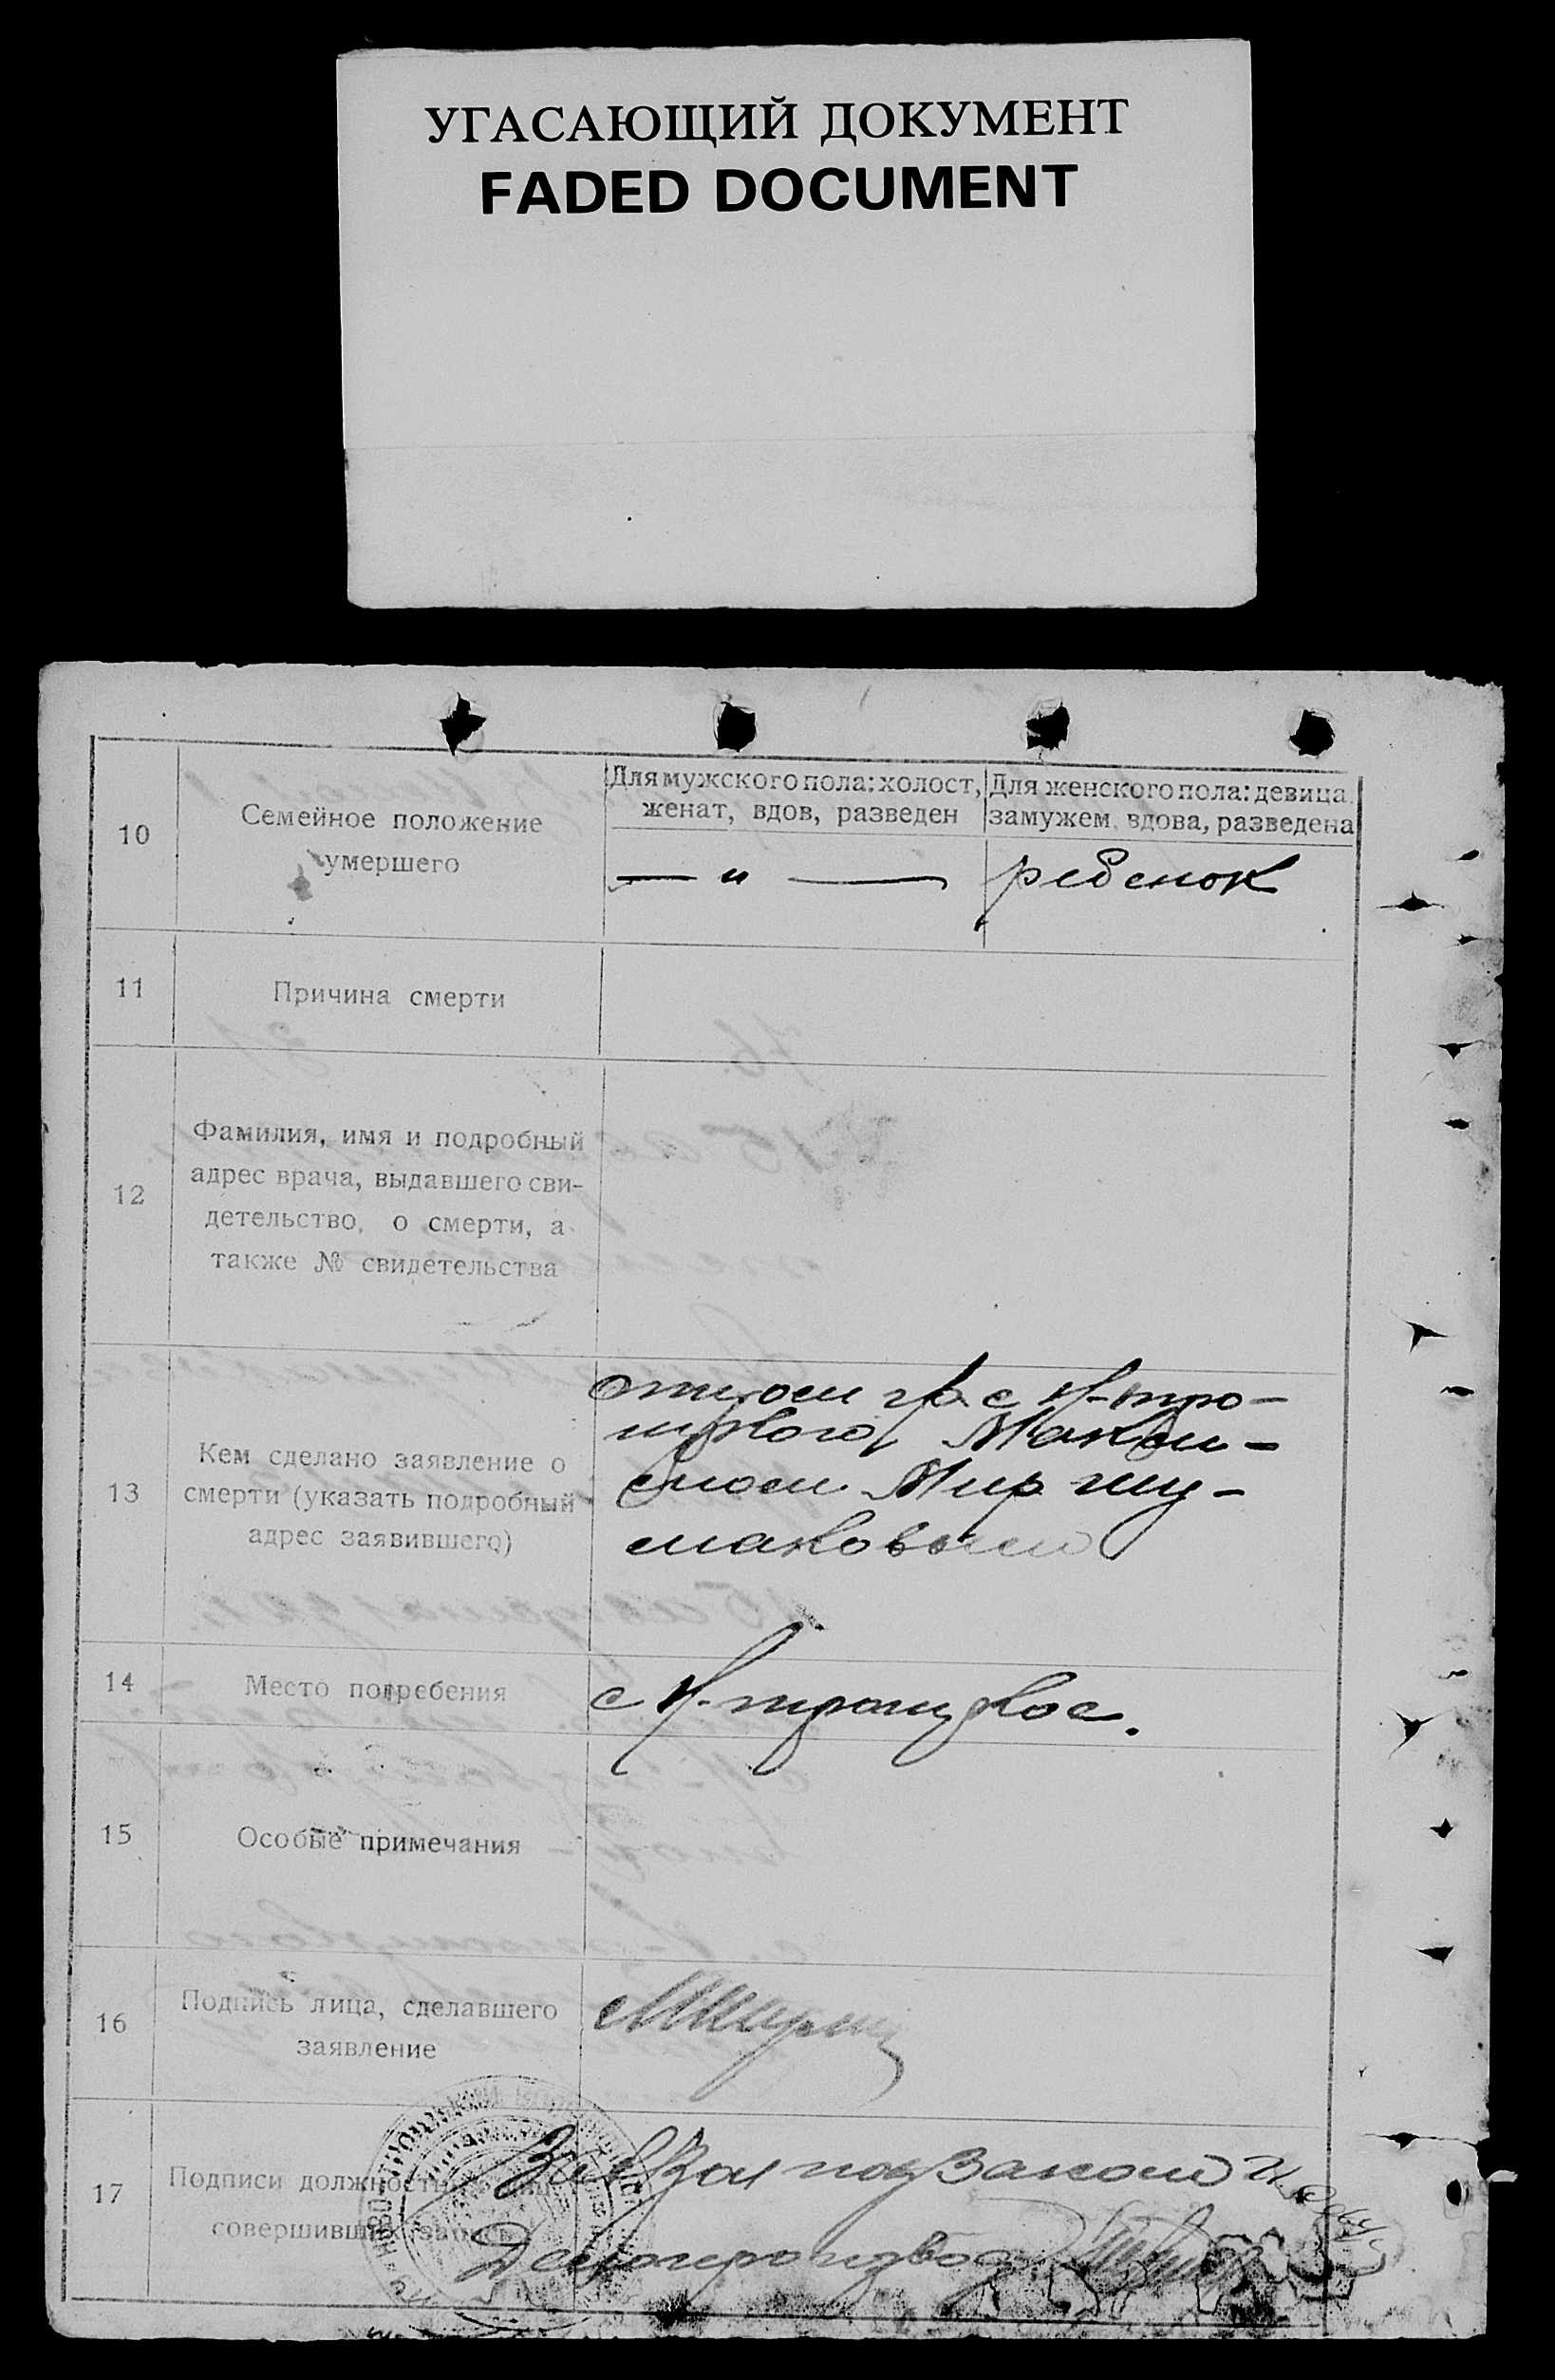 УГАСАЮЩИЙ ДОКУМЕНТ
FADED DOCUMENT
10
Семейное положение
умершего
Для мужского пола: холост,
женат, вдов, разведен
Для женского пола: девица
замужем, вдова, разведена
— „ —
ребенок
11
Причина смерти
12
Фамилия, имя и подробный
адрес врача, выдавшего сви-
детельство, о смерти, а
также № свидетельства
13
Кем сделано заявление о
смерти (указать подробный
адрес заявившего)
отцом гр. с Н-тро-
ицкого
маковым
14
Место погребения
с Н-троицкое.
15
Особые примечания
16
Подпись лица, сделавшего
заявление
17
Подписи должностных лиц,
совершивших запись
Делопроизвод